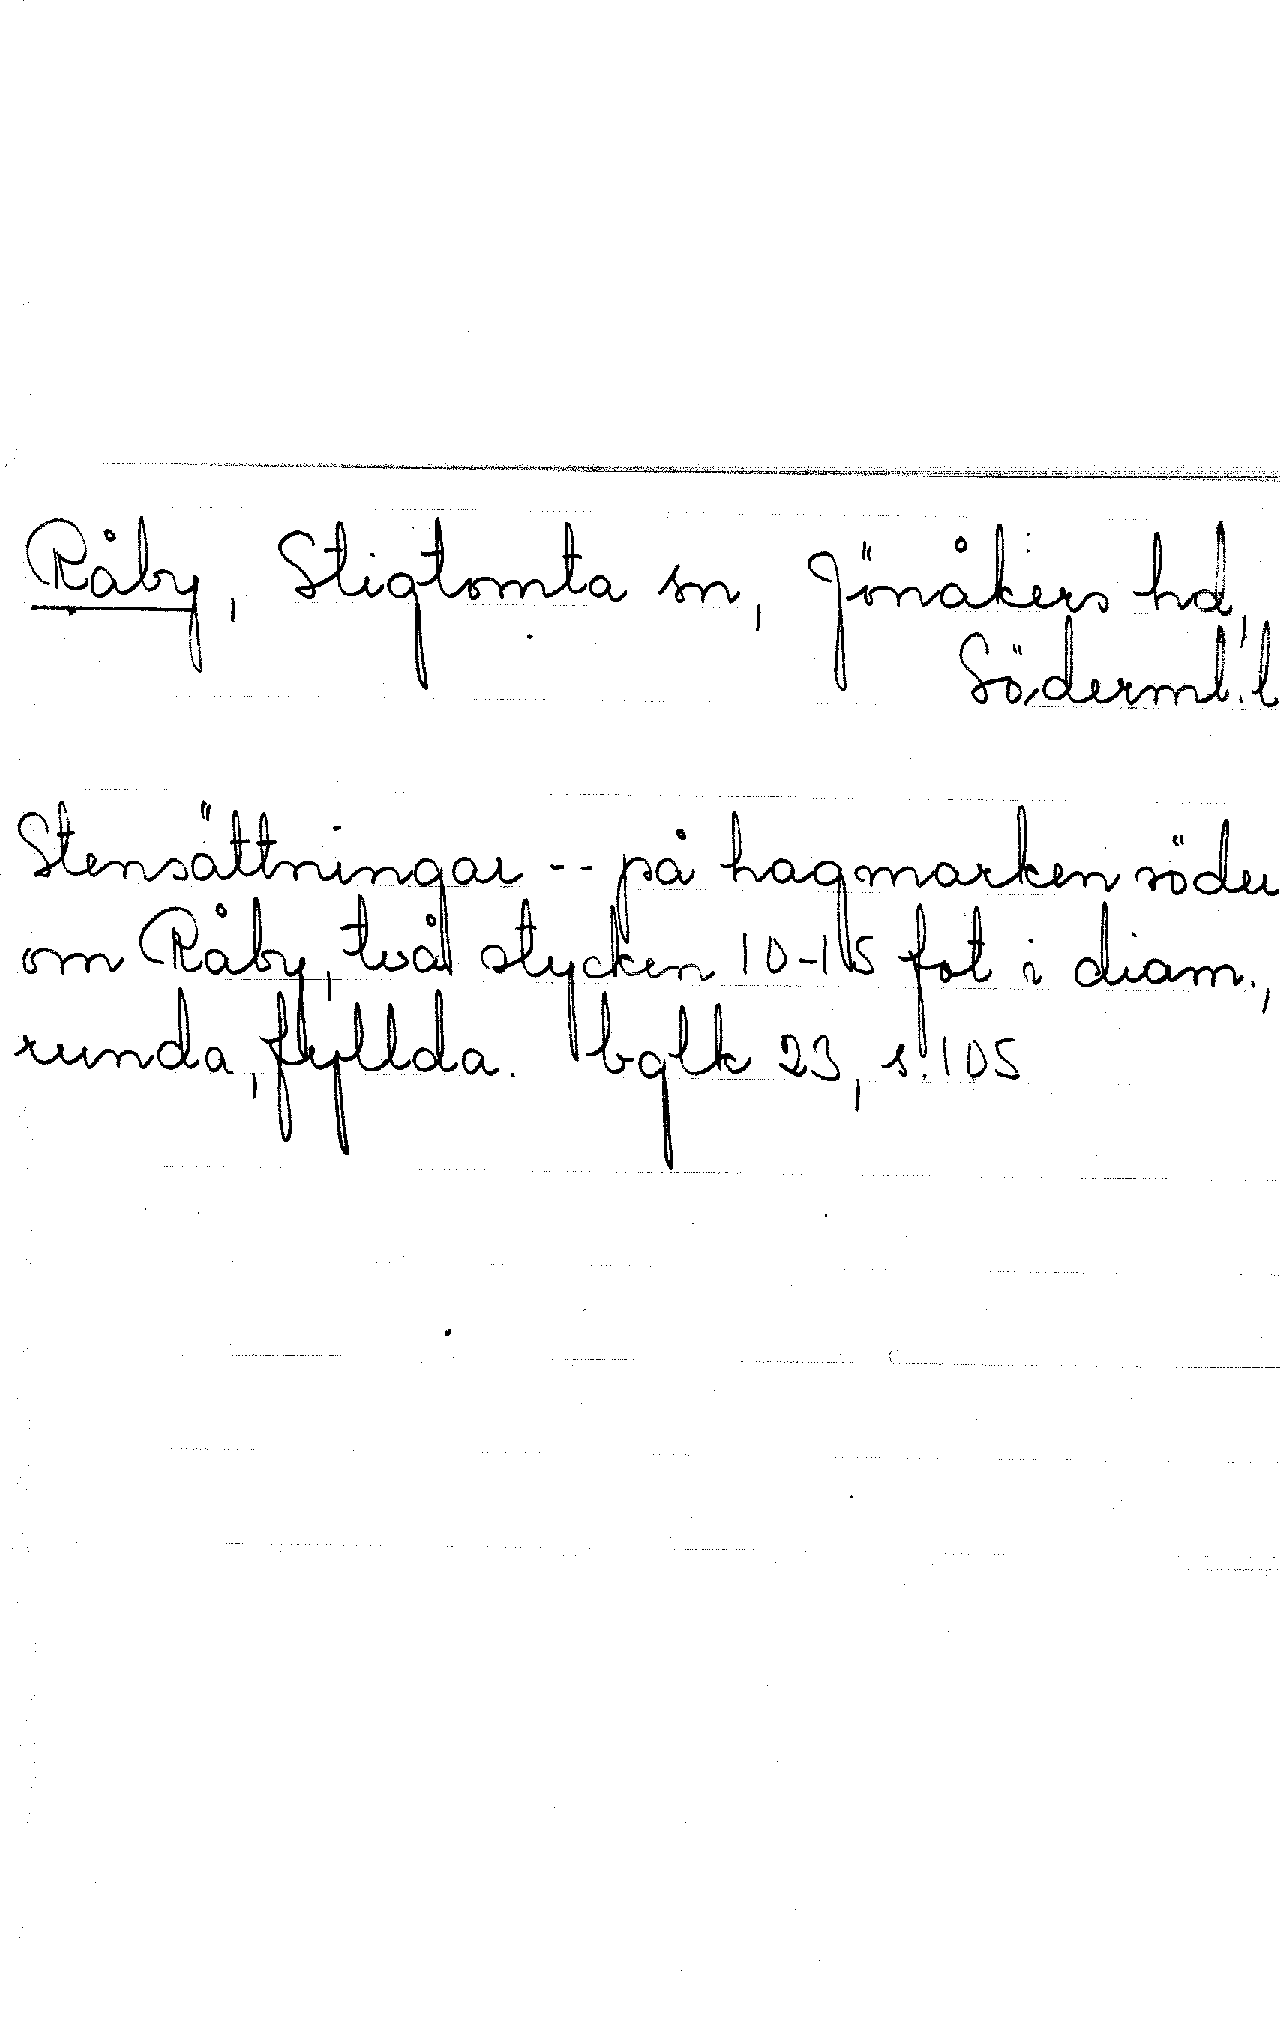 Råby, Stigtomta sn, Jönåkers hd,
Söderml. l
Stensättningar -- på hagmarken söder
om Råby, två stycken 10-15 fot i diam.,
runda, fyllda. bglk 23, s. 105